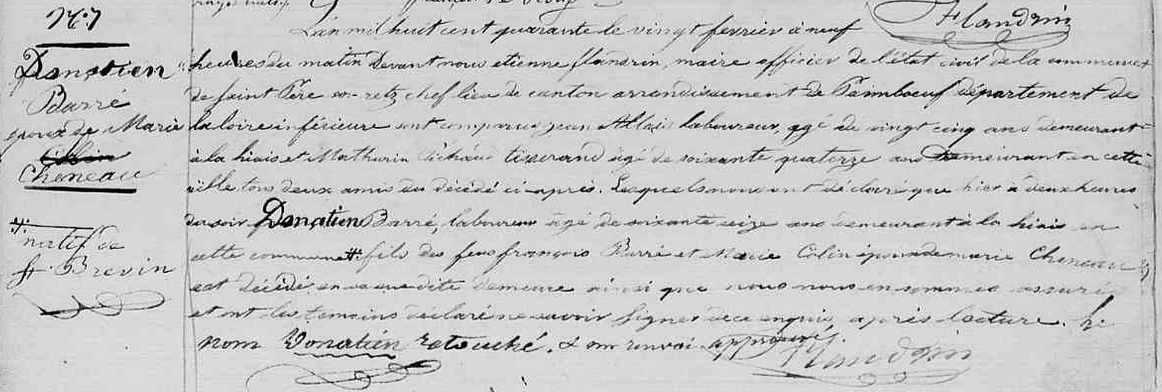 N.° 7
Donatien
Barré
epoux de Marie
Colin
Cheneau
natif de
St Brevin
Flandrin
L'an mil huit cent quarante le vingt fevrier à neuf
heures du matin Devant nous etienne flandrin, maire officier de l'état civil de la commune
de saint Père en retz chef lieu de canton arrondissement de Paimboeuf département de
la loire inférieure sont comparus jean Allais laboureur, agé de vingt cinq ans demeurant
à la hiais et Mathurin tisserand agé de soixante quatorze ans demeurant en cette
ville tous deux amis du décédé ci-après. Lesquels nous ont déclaré que hier à deux heures
du soir Donatien Barré, laboureur agé de soixante seize ans demeurant à la hiais en
cette commune fils des feus françois Barré et Marie Colin époux de marie Cheneau
est décédé en sa que dite demeure ainsi que nous nous en sommes assuré
et ont les temoins déclaré ne savoir signer de ce enquis, après lecture. Le
nom Donatien retouché. & un renvoi approuvé.
Flandrin